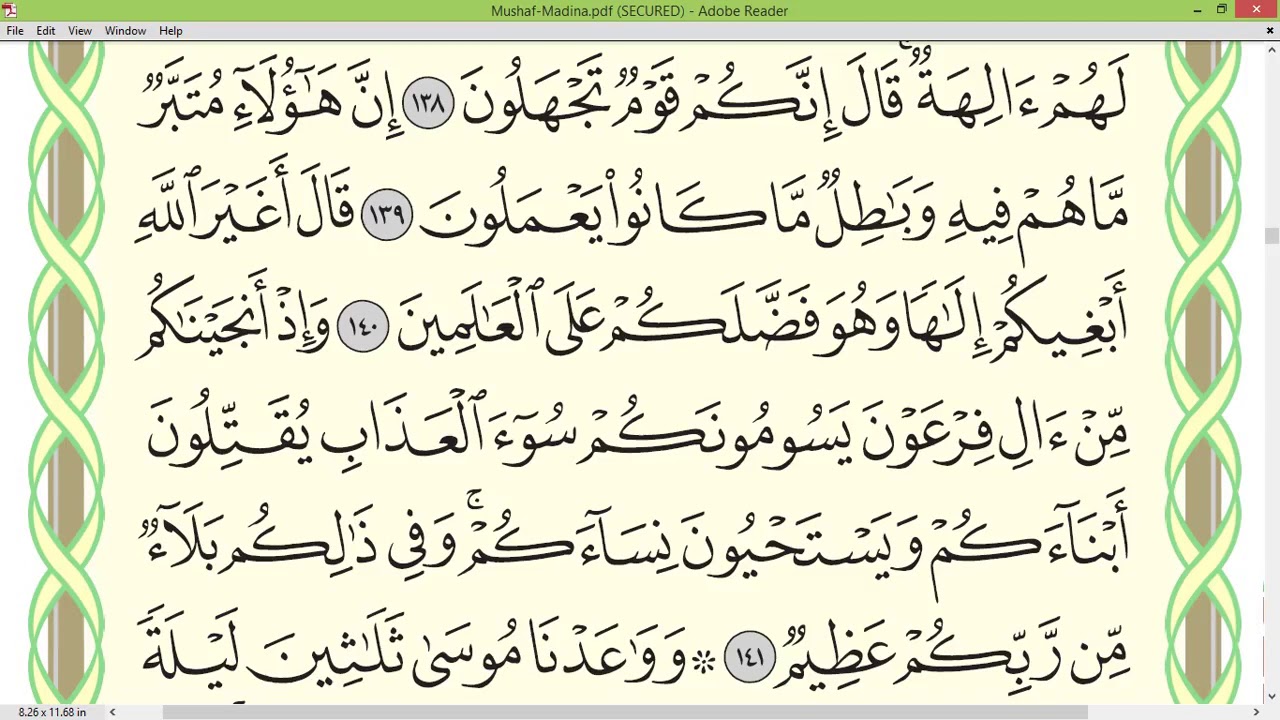 Mushaf-Madina.pdf (SECURED) - Adobe Reader
File Edit View Window Help
لَهُمْ ءَالِهَةٌۚ قَالَ إِنَّكُمْ قَوْمٌ تَجْهَلُونَ ١٣٨ إِنَّ هَٰٓؤُلَآءِ مُتَبَّرٌ
مَّا هُمْ فِيهِ وَبَٰطِلٌ مَّا كَانُوا۟ يَعْمَلُونَ ١٣٩ قَالَ أَغَيْرَ ٱللَّهِ
أَبْغِيكُمْ إِلَٰهًا وَهُوَ فَضَّلَكُمْ عَلَى ٱلْعَٰلَمِينَ ١٤٠ وَإِذْ أَنجَيْنَٰكُم
مِّنْ ءَالِ فِرْعَوْنَ يَسُومُونَكُمْ سُوٓءَ ٱلْعَذَابِ يُقَتِّلُونَ
أَبْنَآءَكُمْ وَيَسْتَحْيُونَ نِسَآءَكُمْۚ وَفِى ذَٰلِكُم بَلَآءٌ
مِّن رَّبِّكُمْ عَظِيمٌ ١٤١ ۞ وَوَٰعَدْنَا مُوسَىٰ ثَلَٰثِينَ لَيْلَةً
8.26 x 11.68 in